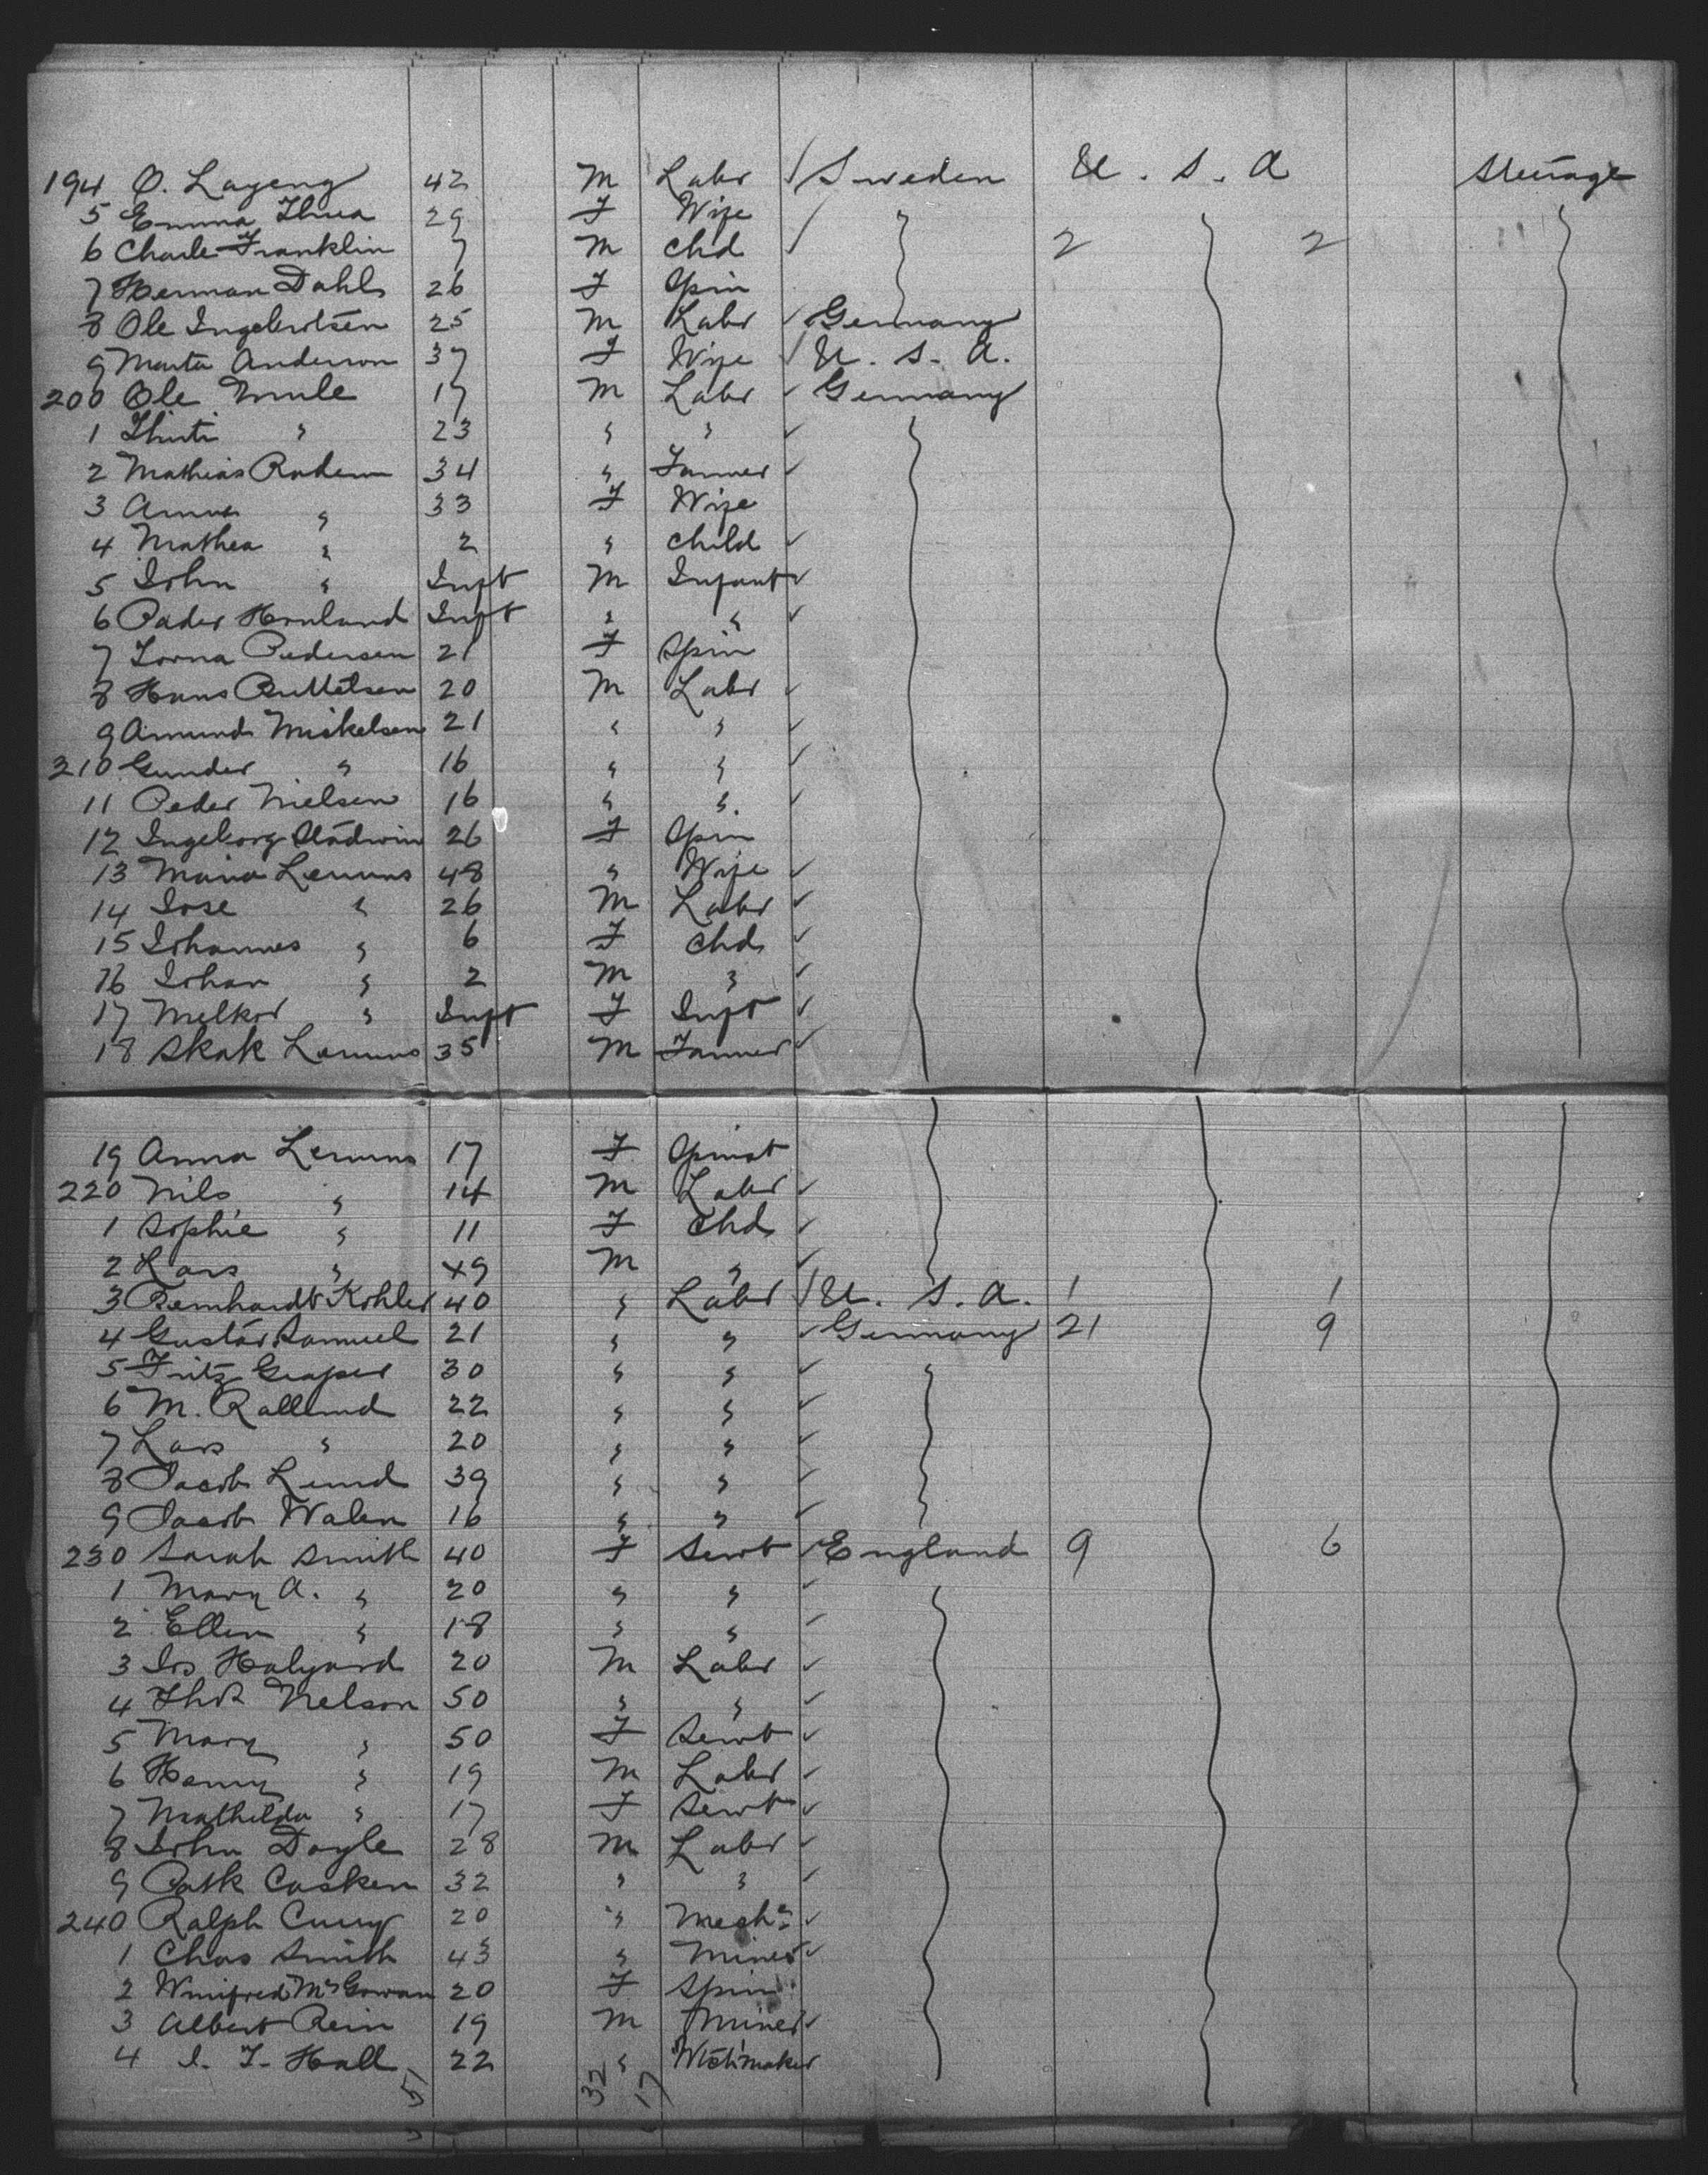 194 O. Layeng 42 M Labr / Sweden U. S. A Steerage
5 Emma Thua 29 F Wife /
6 Charle Franklin 7 M Chd / 2 2
7 Herman Dahls 26 F Spin
8 Ole Ingebritsen 25 M Labr ✓ Germany
9 Marta Anderson 37 F Wife / U. S. A.
200 Ole Mule 17 M Labr ✓ Germany
1 Thisti " 23 " " ✓
2 Mathias Rodem 34 " Farmer ✓
3 Anna " 33 F Wife
4 Mathea " 2 " Child ✓
5 John " Inft M Infant ✓
6 Pader Homland Inft " " ✓
7 Lorna Pedersen 21 F Spin
8 Hans 20 M Labr ✓
9 Amund Mickelsen 21 " " ✓
210 Gunder " 16 " " ✓
11 Peder Nielsen 16 " " ✓
12 Ingeborg 26 F Spin
13 Maria Lemms 48 " Wife ✓
14 Jose " 26 M Labr ✓
15 Johannes " 6 F Chd ✓
16 Johan " 2 M " ✓
17 Melkor " Inft F Inft ✓
18 Skak Lemms 35 M Farmer ✓
19 Anna Lemms 17 F Spinst
220 Nils " 14 M Labr ✓
1 Sophie " 11 F Chd ✓
2 Lars " 49 M " ✓
3 Bernhardt Kohler 40 " Labr / U. S. A. 1 1
4 Gustav Samuel 21 " " ✓ Germany 21 9
5 Fritz Graper 30 " " ✓
6 M. Rallund 22 " " ✓
7 Lars " 20 " " ✓
8 Jacob Lund 39 " " ✓
9 Jacob Walen 16 " " ✓
230 Sarah Smith 40 F Servt ✓ England 9 6
1 Mary A. " 20 " " ✓
2 Ellen " 18 " " ✓
3 Jos Halyard 20 M Labr ✓
4 Thos Nelson 50 " " ✓
5 Mary " 50 F Servt ✓
6 Henry " 19 M Labr ✓
7 Mathilda " 17 F Servt ✓
8 John Doyle 28 M Labr ✓
9 Patk Casken 32 " " ✓
240 Ralph Curry 20 " Mechc ✓
1 Chas Smith 43 " Miner ✓
2 Winifred McGowan 20 F Spin
3 Albert Rein 19 M Miner ✓
4 J. T. Hall 22 " Wtchmaker
32 17